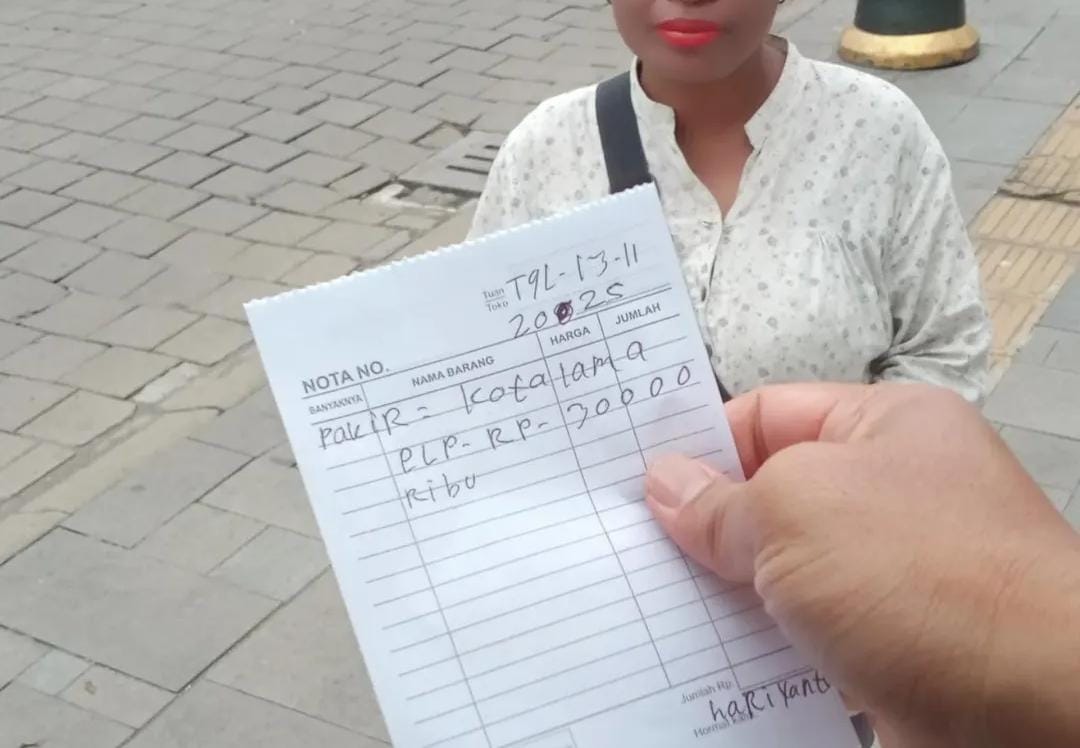 Tuan
Toko
T9L-13-11
2025
NOTA NO.
BANYAKNYA NAMA BARANG HARGA JUMLAH
PakiR= Kota lama
PLP- RP- 30000
Ribu
Jumlah Rp.
Hormat kami,
haRiyanto